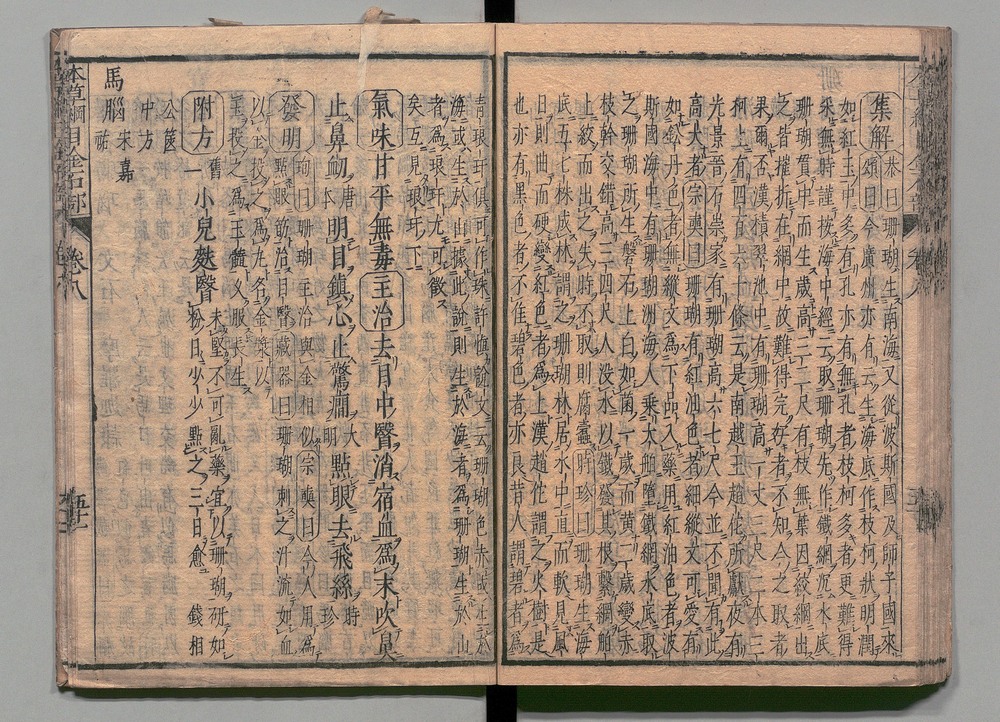 集解 恭曰珊瑚生南海又從波斯國及師子國來
頌曰今廣州亦有云生海底作枝柯狀明潤
如紅玉中多有孔亦有無孔者枝柯多者更難得
采無時謹按海中經云取珊瑚先作鐵網沉水底
珊瑚貫中而生歲高三二尺有枝無葉因絞網出
之皆摧折在網中故難得完好者不知今之取者
果爾否漢積翠池中有珊瑚高一丈二尺一本三
柯上有四百六十條云是南越王趙佗所獻夜有
光景晉石崇家有珊瑚高六七尺今並不聞有此
高大者宗奭曰珊瑚有紅油色者細縱文可愛有
如鉛丹色者無縱文爲下品入藥用紅油色者波
斯國海中有珊瑚洲海人乘大舶墮鐵網水底取
之珊瑚所生磐石上白如菌一歲而黃二歲變赤
枝幹交錯高三四尺人没水以鐵發其根繫網舶
上絞而出之失時不取則腐蠹時珍曰珊瑚生海
底五七株成林謂之珊瑚林居水中直而軟見風
日則曲而硬變紅色者爲上漢趙佗謂之火樹是
也亦有黑色者不佳碧色者亦良昔人謂碧者爲
青琅玕俱可作珠許慎說文云珊瑚色赤或生於
海或生於山據此說則生於海者爲珊瑚生於山
者爲琅玕尤可徵
矣互見琅玕下
氣味甘平無毒 主治去目中瞖消宿血爲末吹鼻
止鼻衄唐本 明目鎮心止驚癇大明 點眼去飛絲時珍
發明 珣曰珊瑚主治與金相似宗奭曰今人用爲
點眼筯治目瞖藏器曰珊瑚刺之汁流如血
以金投之爲丸名金漿以
玉投之爲玉髓久服長生
附方 舊一 小兒麩瞖 未堅不可亂藥宜以珊瑚研如
粉日少少點之三日愈 錢相
公篋
中方
馬腦 宋嘉
祐
本草綱目金石部 卷八